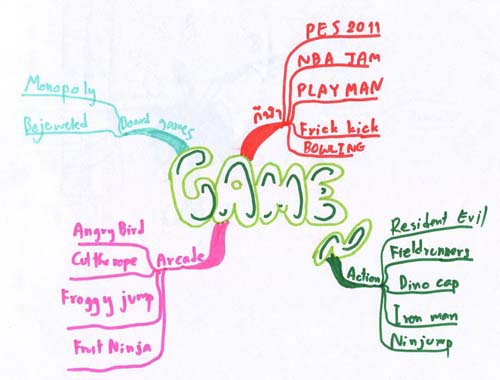 GAME
กีฬา
PES 2011
NBA JAM
PLAY MAN
Frick kick
BOWLING
Board games
Monopoly
Bejeweled
Arcade
Angry Bird
Cut the rope
Froggy jump
Fruit Ninja
Action
Resident Evil
Fieldrunners
Dino cap
Iron man
Ninjump